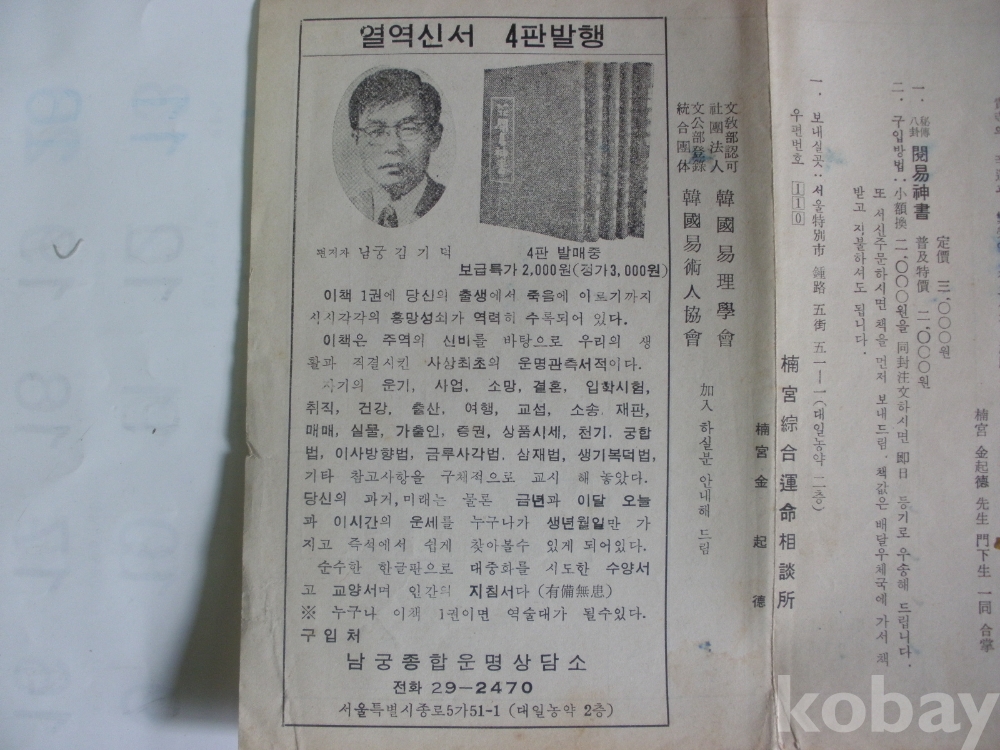 열역신서 4판발행
편저자 남궁 김기덕
4판 발매중
보급특가 2,000원(정가3,000원)
이책 1권에 당신의 출생에서 죽음에 이르기까지
시시각각의 흥망성쇠가 역력히 수록되어 있다.
이책은 주역의 신비를 바탕으로 우리의 생
활과 직결시킨 사상최초의 운명관측서적이다.
자기의 운기, 사업, 소망, 결혼, 입학시험,
취직, 건강, 출산, 여행, 교섭, 소송, 재판,
매매, 실물, 가출인, 증권, 상품시세, 천기. 궁합
법, 이사방향법, 금루사각법. 삼재법, 생기복덕법,
기타 참고사항을 구체적으로 교시 해 놓았다.
당신의 과거, 미래는 물론 금년과 이달 오늘
과 이시간의 운세를 누구나가 생년월일만 가
지고 즉석에서 쉽게 찾아볼수 있게 되어있다.
순수한 한글판으로 대중화를 시도한 수양서
고 교양서며 인간의 지침서다 (有備無患)
※ 누구나 이책 1권이면 역술대가 될수있다.
구입처
남궁종합운명상담소
전화 29-2470
서울특별시종로5가51-1 (대일농약 2층)
一. 秘傳八卦 閱易神書 定價 三,〇〇〇원
普及特價 二,〇〇〇원
二. 구입방법: 小額換 二,〇〇〇원을 同封注文하시면 即日 등기로 우송해 드립니다.
또 서신주문하시면 책을 먼저 보내드림. 책값은 배달우체국에 가서 책
받고 지불하셔도 됩니다.
一. 보내실곳: 서울特別市 鍾路 五街 五一一一(대일농약 二층)
우편번호 110
楠宮綜合運命相談所
楠宮 金起德
文敎部認可
社團法人 韓國易理學會
文公部登錄
統合團体 韓國易術人協會
加入 하실분 안내해 드림
楠宮 金起德 先生 門下生 一同 合掌
kobay